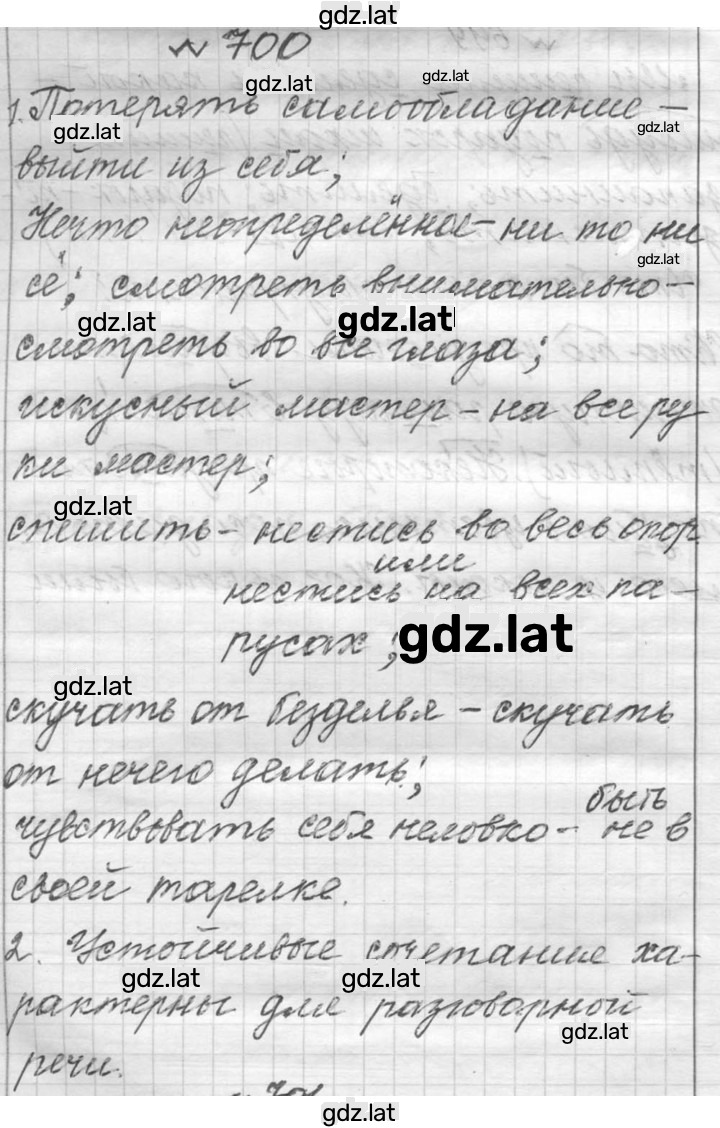 gdz.lat
№ 700
gdz.lat
gdz.lat
1. Потерять самообладание –
gdz.lat
gdz.lat
выйти из себя;
Нечто неопределённое – ни то ни
gdz.lat
сё; смотреть внимательно –
gdz.lat
gdz.lat
смотреть во все глаза;
искусный мастер – на все ру
ки мастер;
gdz.lat
спешить – нестись во весь опор
или
нестись на всех па-
русах;
gdz.lat
gdz.lat
скучать от безделья – скучать
от нечего делать;
быть
чувствовать себя неловко – не в
своей тарелке.
2. Устойчивые сочетания ха-
gdz.lat
gdz.lat
рактерны для разговорной
gdz.lat
речи.
gdz.lat